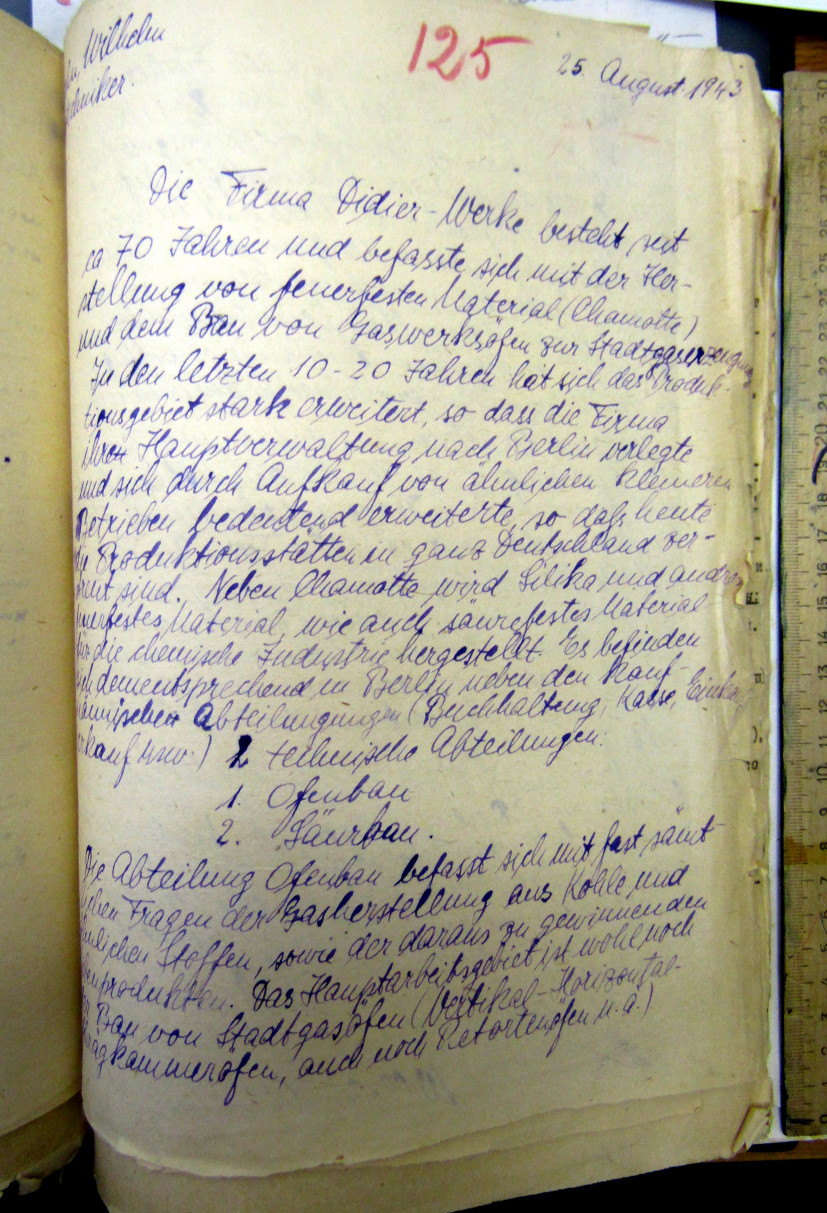 Wilhelm
125
25. August 1943
Die Firma Didier-Werke besteht seit
ca 70 Jahren und befasste sich mit der Her-
stellung von feuerfesten Material (Chamotte)
und dem Bau von Gaswerksöfen zur Stadtgaserzeugung
In den letzten 10-20 Jahren hat sich das Produk-
tionsgebiet stark erweitert, so dass die Firma
ihre Hauptverwaltung nach Berlin verlegte
und sich durch Aufkauf von ähnlichen kleineren
Betrieben bedeutend erweiterte, so daß heute
die Produktionsstätten in ganz Deutschland zer-
sind. Neben Chamotte wird Silika und andres
feuerfestes Material, wie auch säurefestes Material
für die chemische Industrie hergestellt. Es befinden
sich dementsprechend in Berlin neben den Kauf-
männischen Abteilungungen (Buchhaltung, Kasse, Einkauf
rkauf usw.) 2 technische Abteilungen:
1. Ofenbau
2. Säurbau.
Die Abteilung Ofenbau befasst sich mit fast sämt
lichen Fragen der Gasherstellung aus Kohle und
ähnlichen Stoffen, sowie der daraus zu gewinnenden
benprodukten. Das Hauptarbeitsgebiet ist wohl noch
Bau von Stadtgasöfen (Vertikal-Horizontal-
agkammeröfen, auch noch Retortenöfen u. a.)